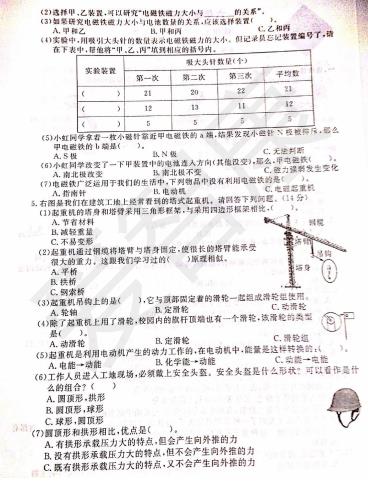 (2)选择甲、乙装置,可以研究"电磁铁磁力大小与 的关系"。
(3)如果研究电磁铁磁力大小与电池数量的关系,应该选择装置( )。
A.甲和乙 B.甲和丙 C.乙和丙
(4)实验中,用吸引大头针的数量表示电磁铁磁力的大小。但记录员忘记装置编号了,请
在下表中,帮他将"甲、乙、丙"填到相应的括号内。
实验装置 吸大头针数量(个)
第一次 第二次 第三次 平均数
( ) 21 20 22 21
( ) 12 13 11 12
( ) 5 5 5 5
(5)小虹同学拿着一枚小磁针靠近甲电磁铁的a端,结果发现小磁针N极被排斥,那么
甲电磁铁的b端是( )。
A.S极 B.N极 C.无法判断
(6)小虹同学改变了一下甲装置中的电池连入方向(其他没变),那么,甲电磁铁( )。
A.南北极改变 B.南北极不变 C.磁力强弱发生变化
(7)电磁铁广泛运用于我们的生活中,下列物品中没有利用电磁铁的是( )。
A.指南针 B.电动机 C.电磁起重机
5.右图是我们在建筑工地上经常看到的塔式起重机。请回答下列问题。(14分)
(1)起重机的塔身和塔臂采用三角形框架,与采用四边形框架相比,( )。
A.节省材料
B.减轻重量
C.不易变形
(2)起重机通过钢缆将塔臂与塔身固定,使很长的塔臂能承受
很大的重力。这跟我们学习过的( )原理相似。
A.平桥
B.拱桥
C.钢索桥
钢缆
吊钩
塔身
(3)起重机吊钩上的是( ),它与顶部固定着的滑轮一起组成滑轮组使用。
A.轮轴 B.定滑轮 C.动滑轮
(4)除了起重机上用了滑轮,校园内的旗杆顶端也有一个滑轮,该滑轮的类型
是( )。
A.动滑轮 B.定滑轮 C.滑轮组
(5)起重机是利用电动机产生的动力工作的,在电动机中,能量是这样转换的:( )。
A.电能→动能 B.化学能→动能 C.动能→电能
(6)工作人员进入工地现场,必须戴上安全头盔。安全头盔是什么形状?可以看作是什
么的组合?( )
A.圆顶形,拱形
B.圆顶形,球形
C.球形,圆顶形
(7)圆顶形和拱形相比,优点是( )。
A.有拱形承载压力大的特点,但会产生向外推的力
B.没有拱形承载压力大的特点,但不会产生向外推的力
C.既有拱形承载压力大的特点,又不会产生向外推的力